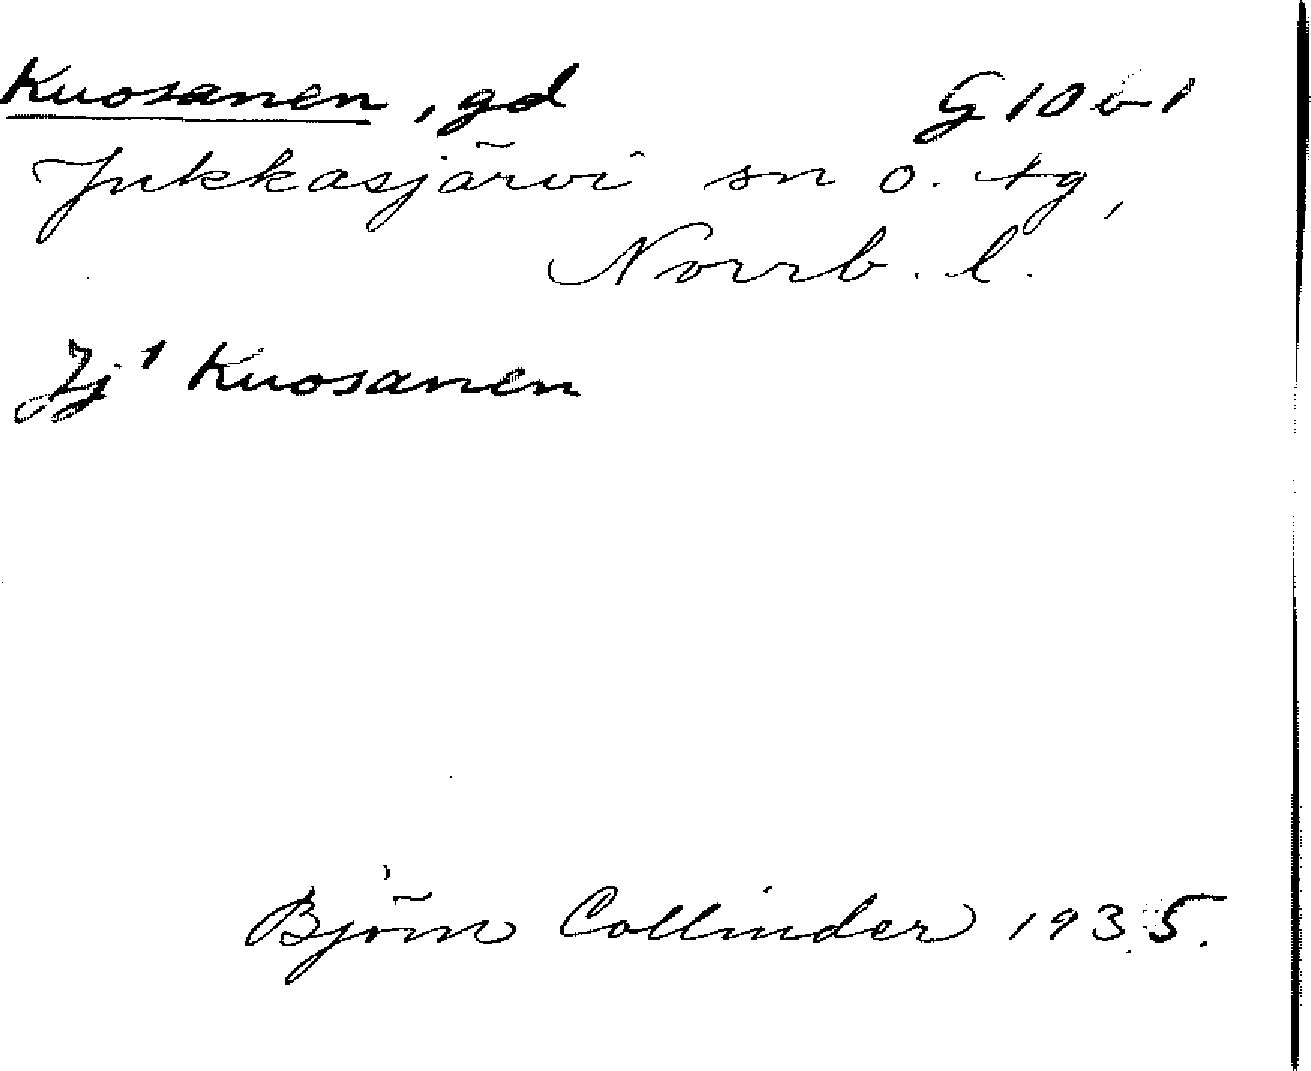 Kuosanen, gd G 10 b 1
Jukkasjärvi sn o. tg,
Norrb. l.
Jj¹ Kuosanen
Björn Collinder 1935.